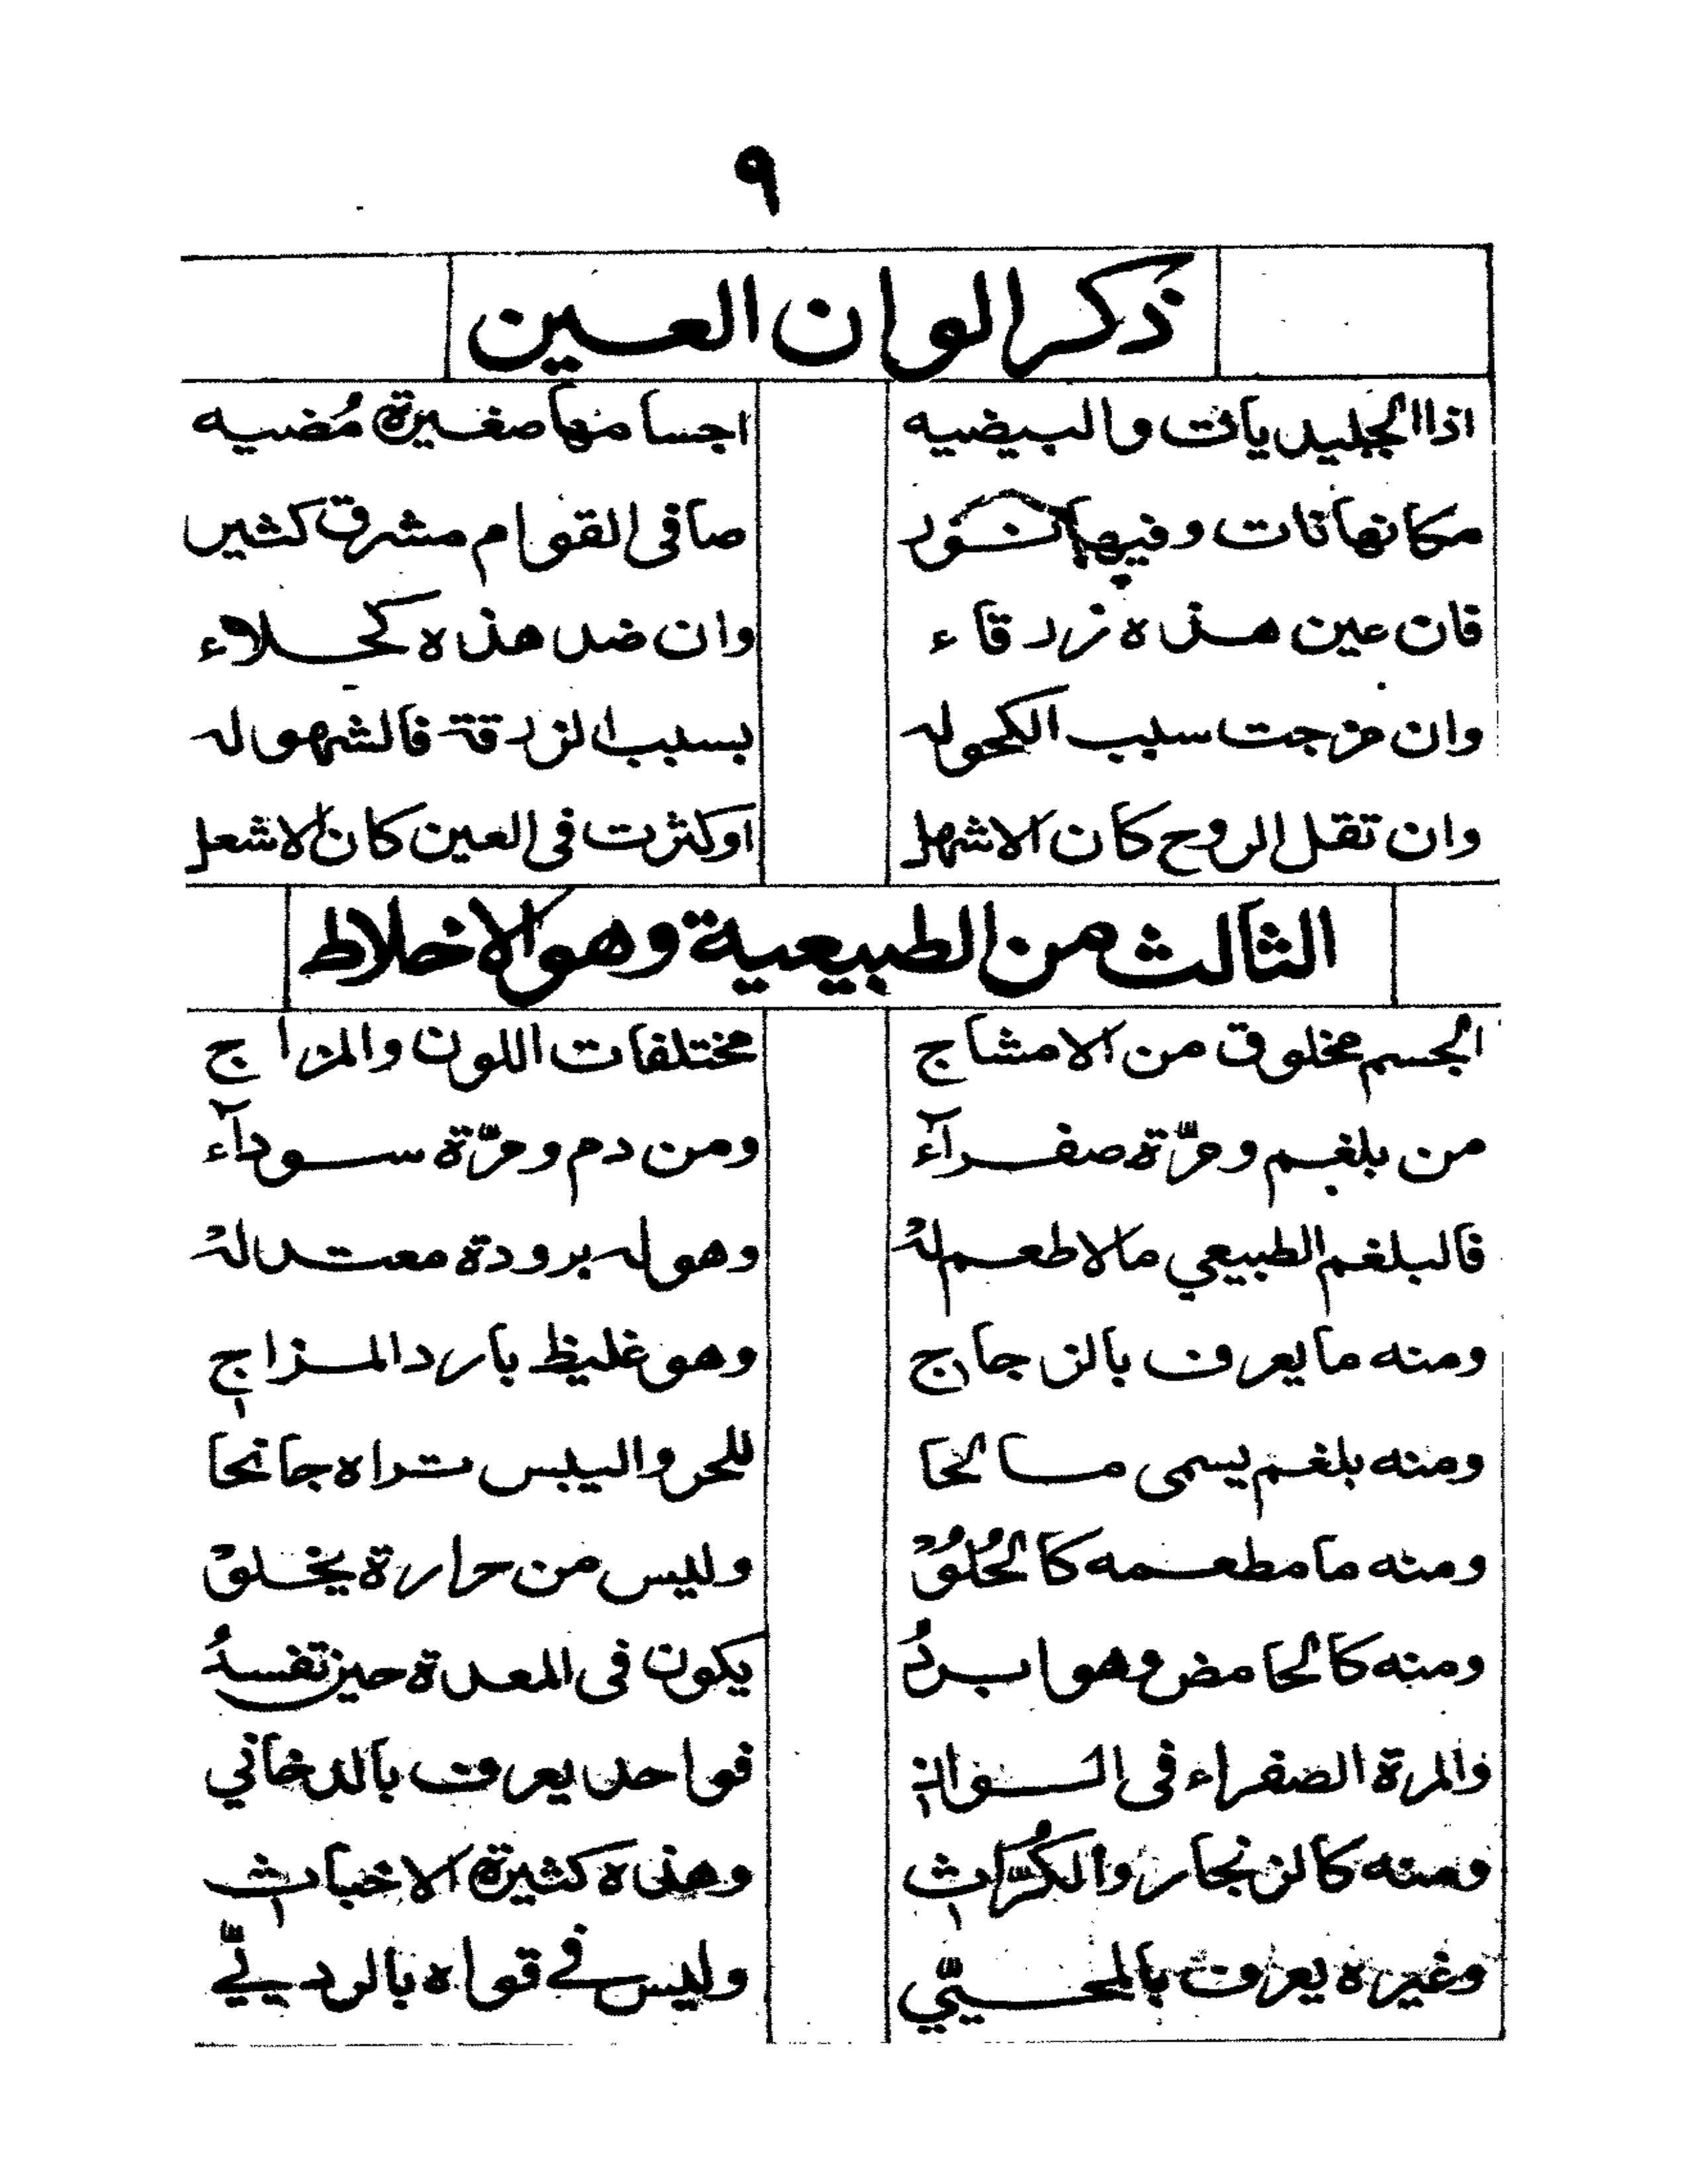 ٩
ذكر الوان العين
اذا الجليديات والبيضيه اجسامها صغيرة مُضيه
مكانها نات وفيها نور صافى القوام مشرق كثير
فان عين هذه زرقاء وان ضد هذه كحلاء
وان مزجت سبب الكحوله بسبب الزرقة فالشهوله
وان تقل الروح كان الاشهل او كثرت فى العين كان الاشعل
الثالث من الطبيعية وهو الاخلاط
الجسم مخلوق من الامشاج مختلفات اللون والمزاج
من بلغم ومرّة صفرآء ومن دم ومرّة سودآء
فالبلغم الطبيعي مالا طعم لهْ وهو له برودة معتدلهْ
ومنه ما يعرف بالزجاج وهو غليظ بارد المزاج
ومنه بلغم يسمى مالحا للحر واليبس تراه جانحا
ومنه ما مطعمه كالحُلُوْ وليس من حرارة يخلوْ
ومنه كالحامض وهو ابردُ يكون فى المعدة حين تفسدُ
والمرة الصفراء فى الوانِ فواحد يعرف بالدخاني
ومنه كالزنجار والكُرّاثِ وهذه كثيرة الاخباثِ
وغيره يعرف بالمحيّي وليس في قواه بالرديّي